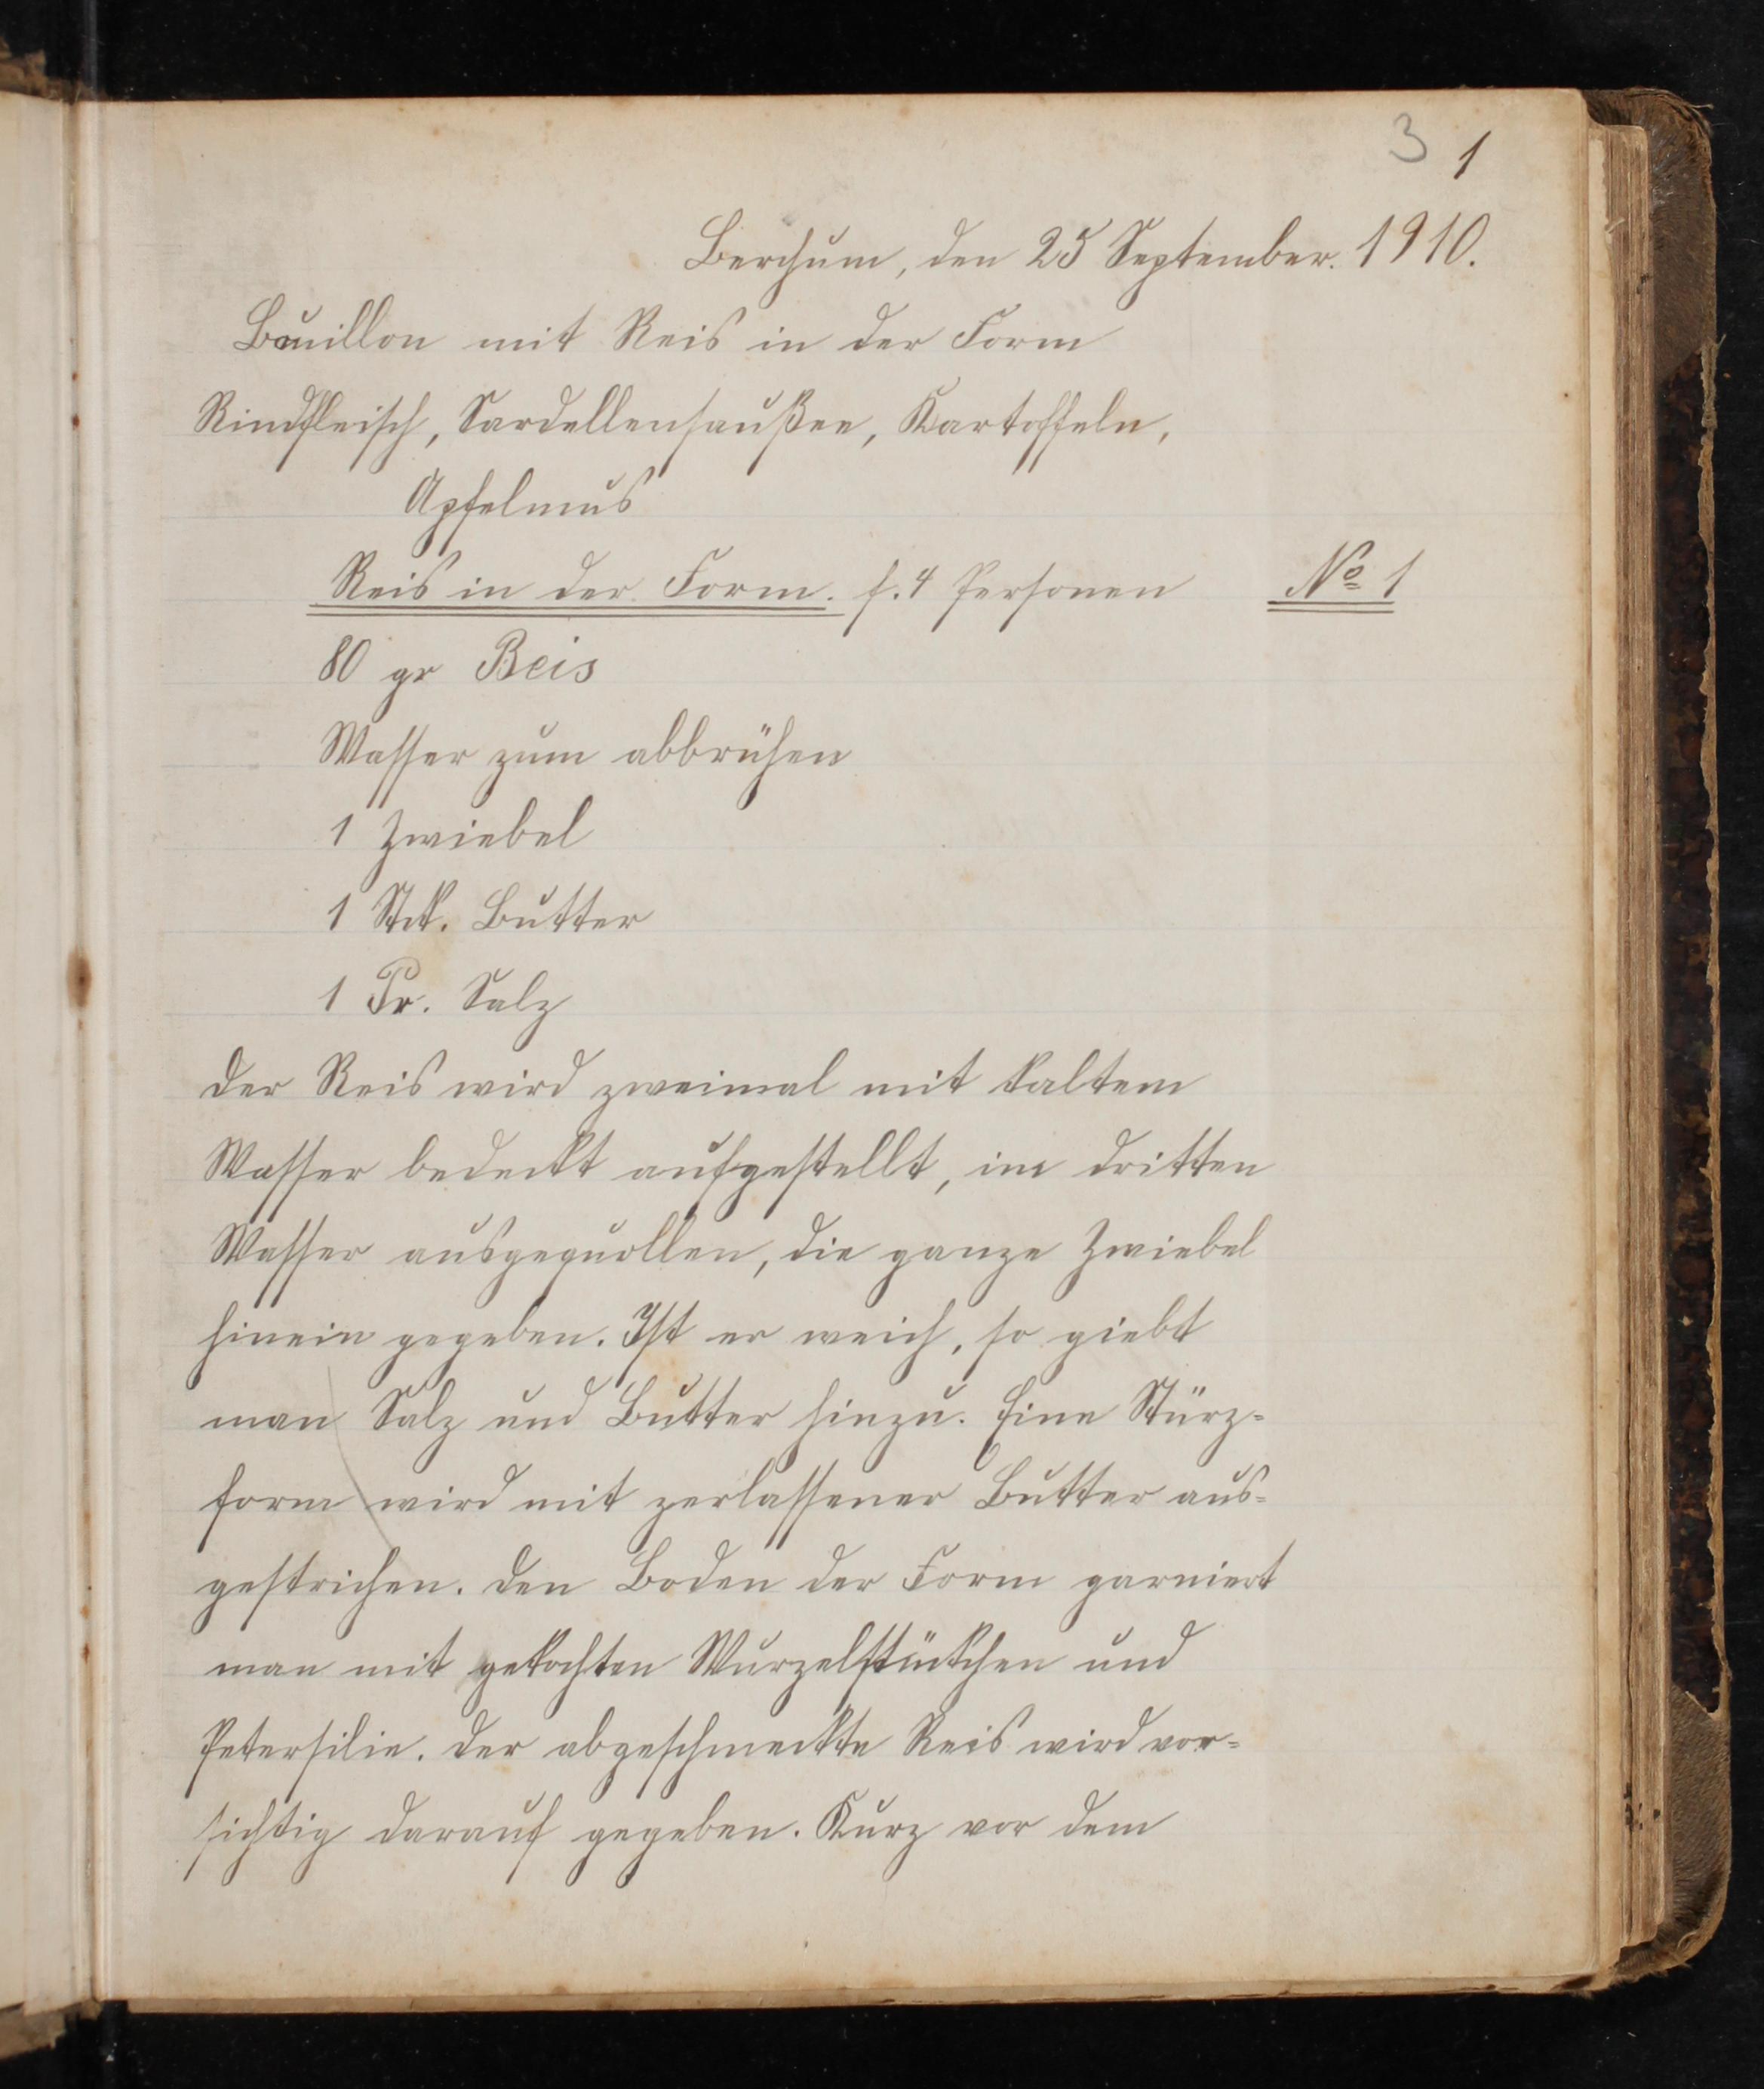 3 1
Berchum, den 25 September. 1910.
Bouillon mit Reis in der Form
Rindfleisch, Sardellensaußee, Kartoffeln,
Apfelmus
Reis in der Form. f. 4 Personen № 1
80 gr Reis
Wasser zum abbrühen
1 Zwiebel
1 Stck. Butter
1 Pr. Salz
Der Reis wird zweimal mit kaltem
Wasser bedeckt aufgestellt, im dritten
Wasser ausgequollen, die ganze Zwiebel
hinein gegeben. Ist er weich, so giebt
man Salz und Butter hinzu. Eine Stürz-
form wird mit zerlassener Butter aus-
gestrichen. Den Boden der Form garniert
man mit gekochten Wurzelstückchen und
Petersilie. Der abgeschmeckte Reis wird vor-
sichtig darauf gegeben. Kurz vor dem